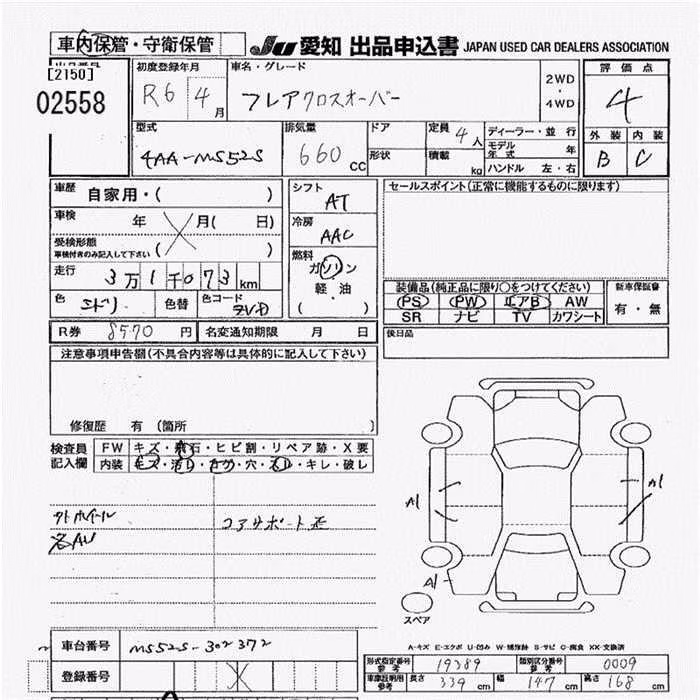 車内保管・守衛保管
JU 愛知 出品申込書 JAPAN USED CAR DEALERS ASSOCIATION
[2150]
02558
初度登録年月
R6 4月
車名・グレード
フレアクロスオーバー
2WD
・
4WD
評価点
4
外装 内装
B C
型式
4AA-MS52S
排気量
660 CC
ドア
形状
定員 4人
積載 kg
ディーラー・並行
モデル年式 年
ハンドル 左・右
車歴 自家用・( )
車検 年 月( 日)
受検形態
車検付きのみ記入して下さい ( )
走行 3万1千073km
色 ミドリ 色替 色コード ZVD
シフト
AT
冷房
AAC
燃料
ガソリン
軽・油
( )
セールスポイント(正常に機能するものに限ります)
装備品(純正品に限り○をつけてください)
PS PW エアB AW
SR ナビ TV カワシート
新車保証書
有・無
R券 8570円 名変通知期限 月 日
後日品
注意事項申告欄(不具合内容等は具体的に記入して下さい)
修復歴 有 (箇所 )
検査員記入欄
FW キズ・飛石・ヒビ割・リペア跡・X要
内装 キズ・汚レ・コゲ・穴・スレ・キレ・破レ
外ホイール
コアサポート歪
A1
A1
A1
スペア
A-キズ E-エクボ U-凹み W-補修跡 S-サビ C-腐食 XX-交換済
車台番号 MS52S-302372
登録番号
形式指定番号 参考 19389
類別区分番号 参考 0009
車庫証明用 参考 長さ 339cm 幅 147cm 高さ 168cm